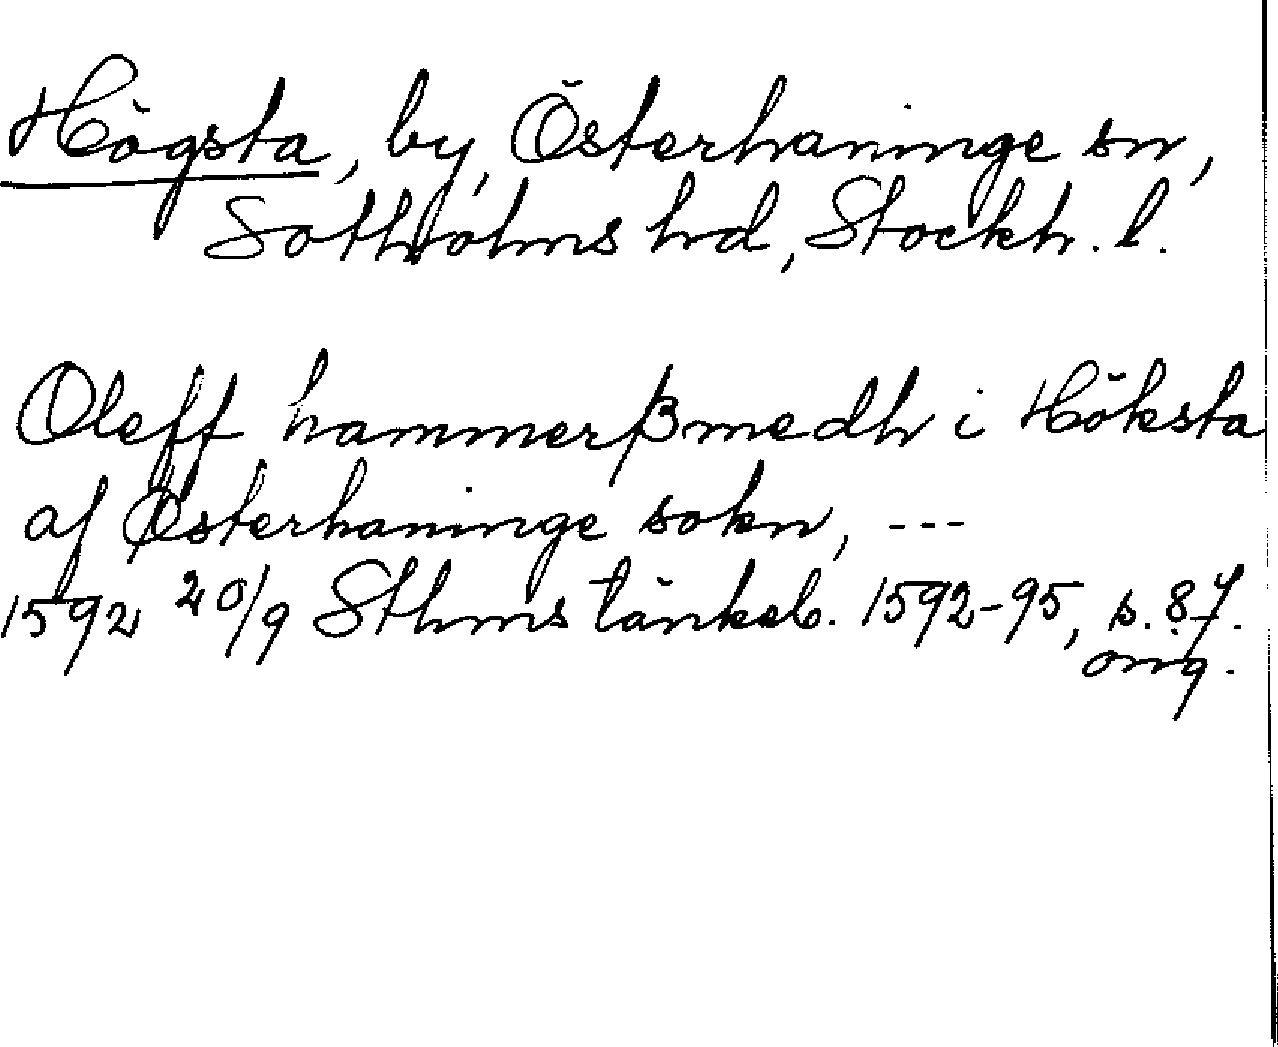 Högsta, by, Österhaninge sn,
Sotholms hd, Stockh. l.
Oleff hammerßmedh i Höksta
af Østerhaninge sokn, ---
1592 20/9 Sthms tänkeb. 1592-95, s. 87.
orig.